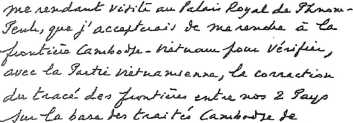 me rendant visite au Palais Royal de Phnom-
Penh, que j'accepterais de me rendre à la
frontière Cambodge-Vietnam pour vérifier,
avec la Partie vietnamienne, la correction
du tracé des frontières entre nos 2 Pays
sur la base des traités Cambodge de